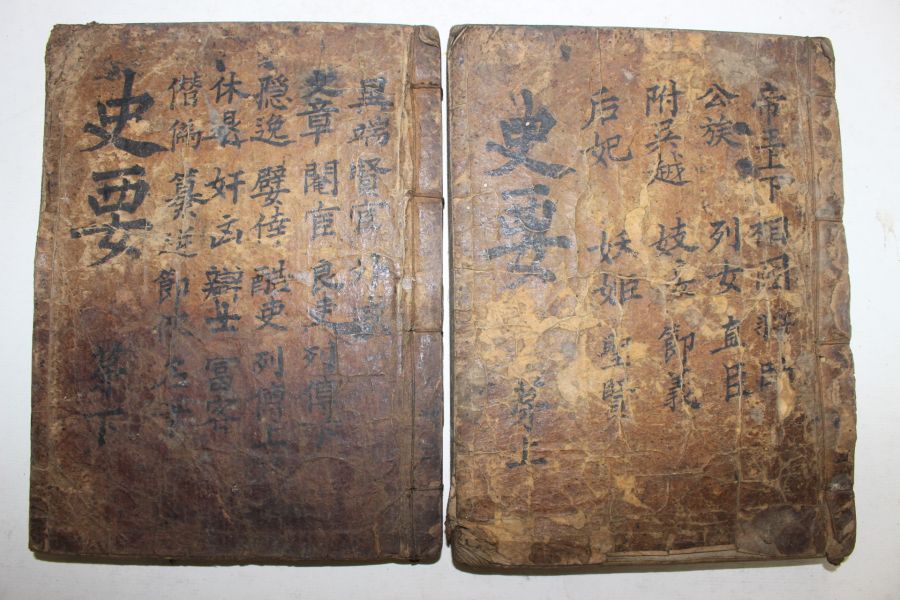 帝王上下 相國
公族 列女 直臣
附吳越 妓妾 節義
后妃 妖姬 聖賢
史要
上
異端 賢宦
文章 閹宦 良吏 列傳下
隱逸 嬖倖 酷吏 列傳上
休退 奸凶 辯士 富客
僭僞 篡逆 節俠
史要
下